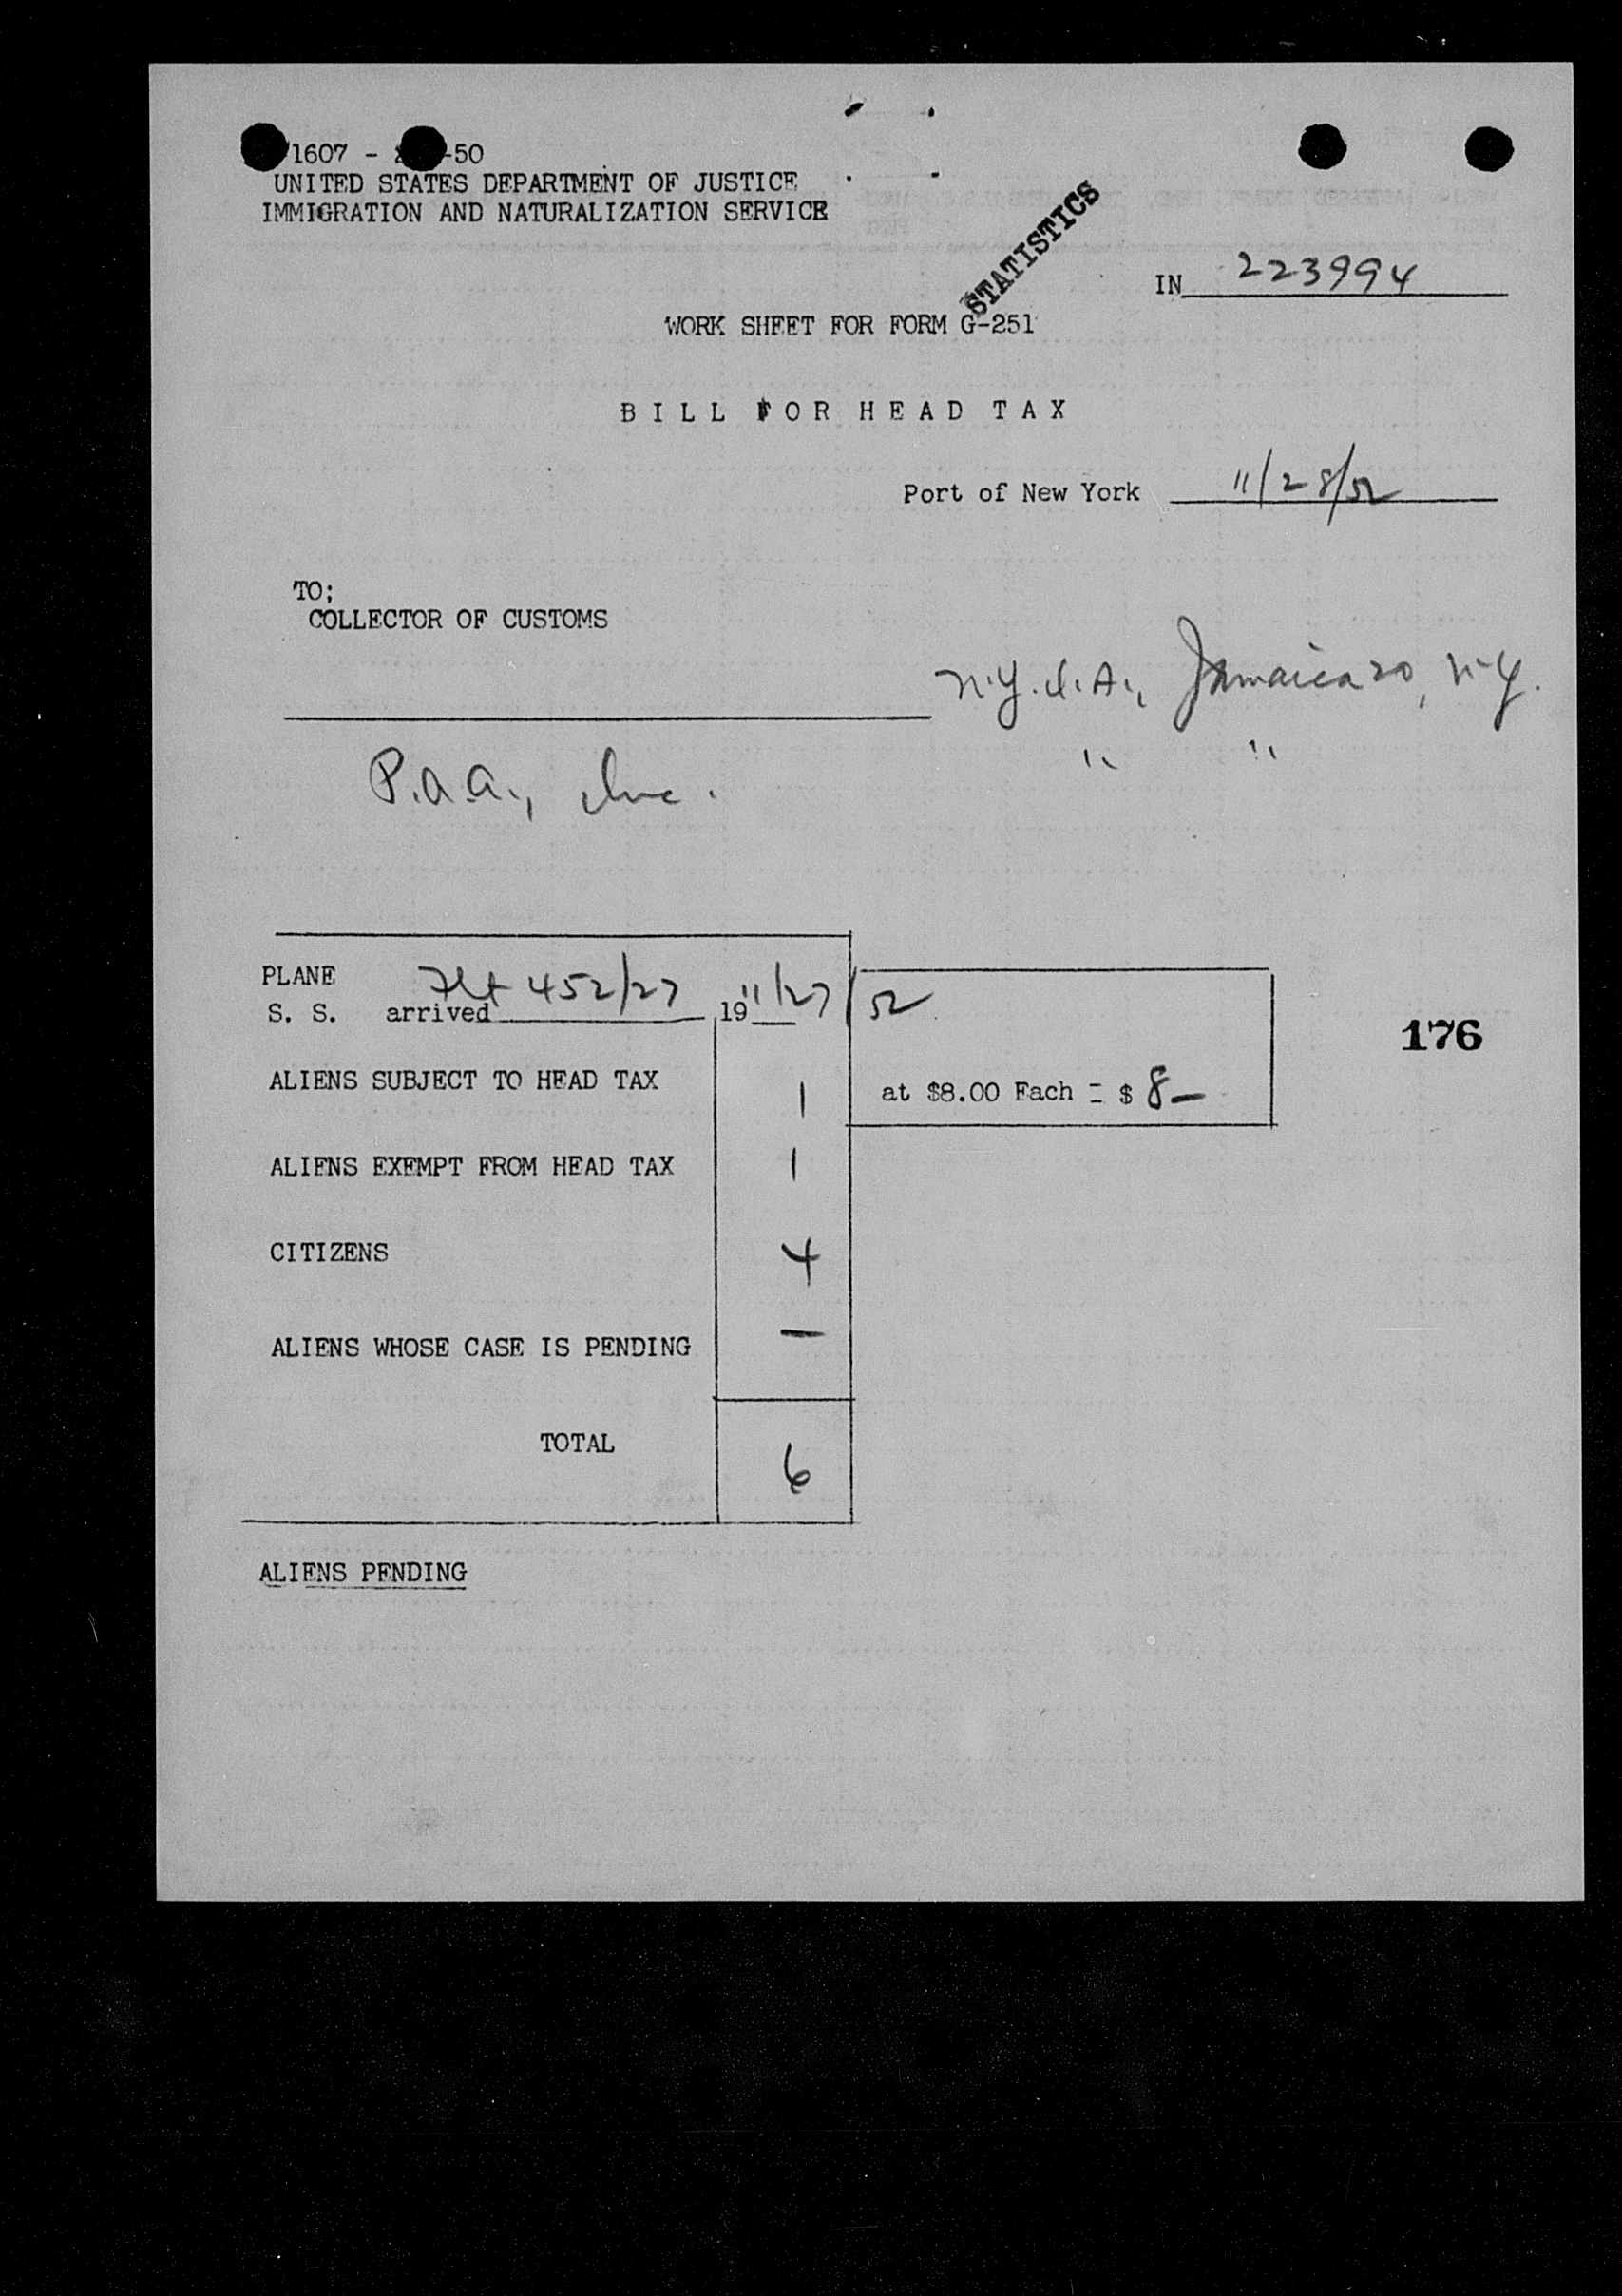 1607 - -50
UNITED STATES DEPARTMENT OF JUSTICE
IMMIGRATION AND NATURALIZATION SERVICE
STATISTICS
IN 223994
WORK SHEET FOR FORM G-251
BILL FOR HEAD TAX
Port of New York 11/28/52
TO;
COLLECTOR OF CUSTOMS
N.Y.I.A., Jamaica 20, N.Y.
P.A.A., Inc. " "
PLANE
S. S. arrived Flt 452/27 19 11/27/52
176
ALIENS SUBJECT TO HEAD TAX 1 at $8.00 Each = $ 8—
ALIENS EXEMPT FROM HEAD TAX 1
CITIZENS 4
ALIENS WHOSE CASE IS PENDING —
TOTAL 6
ALIENS PENDING